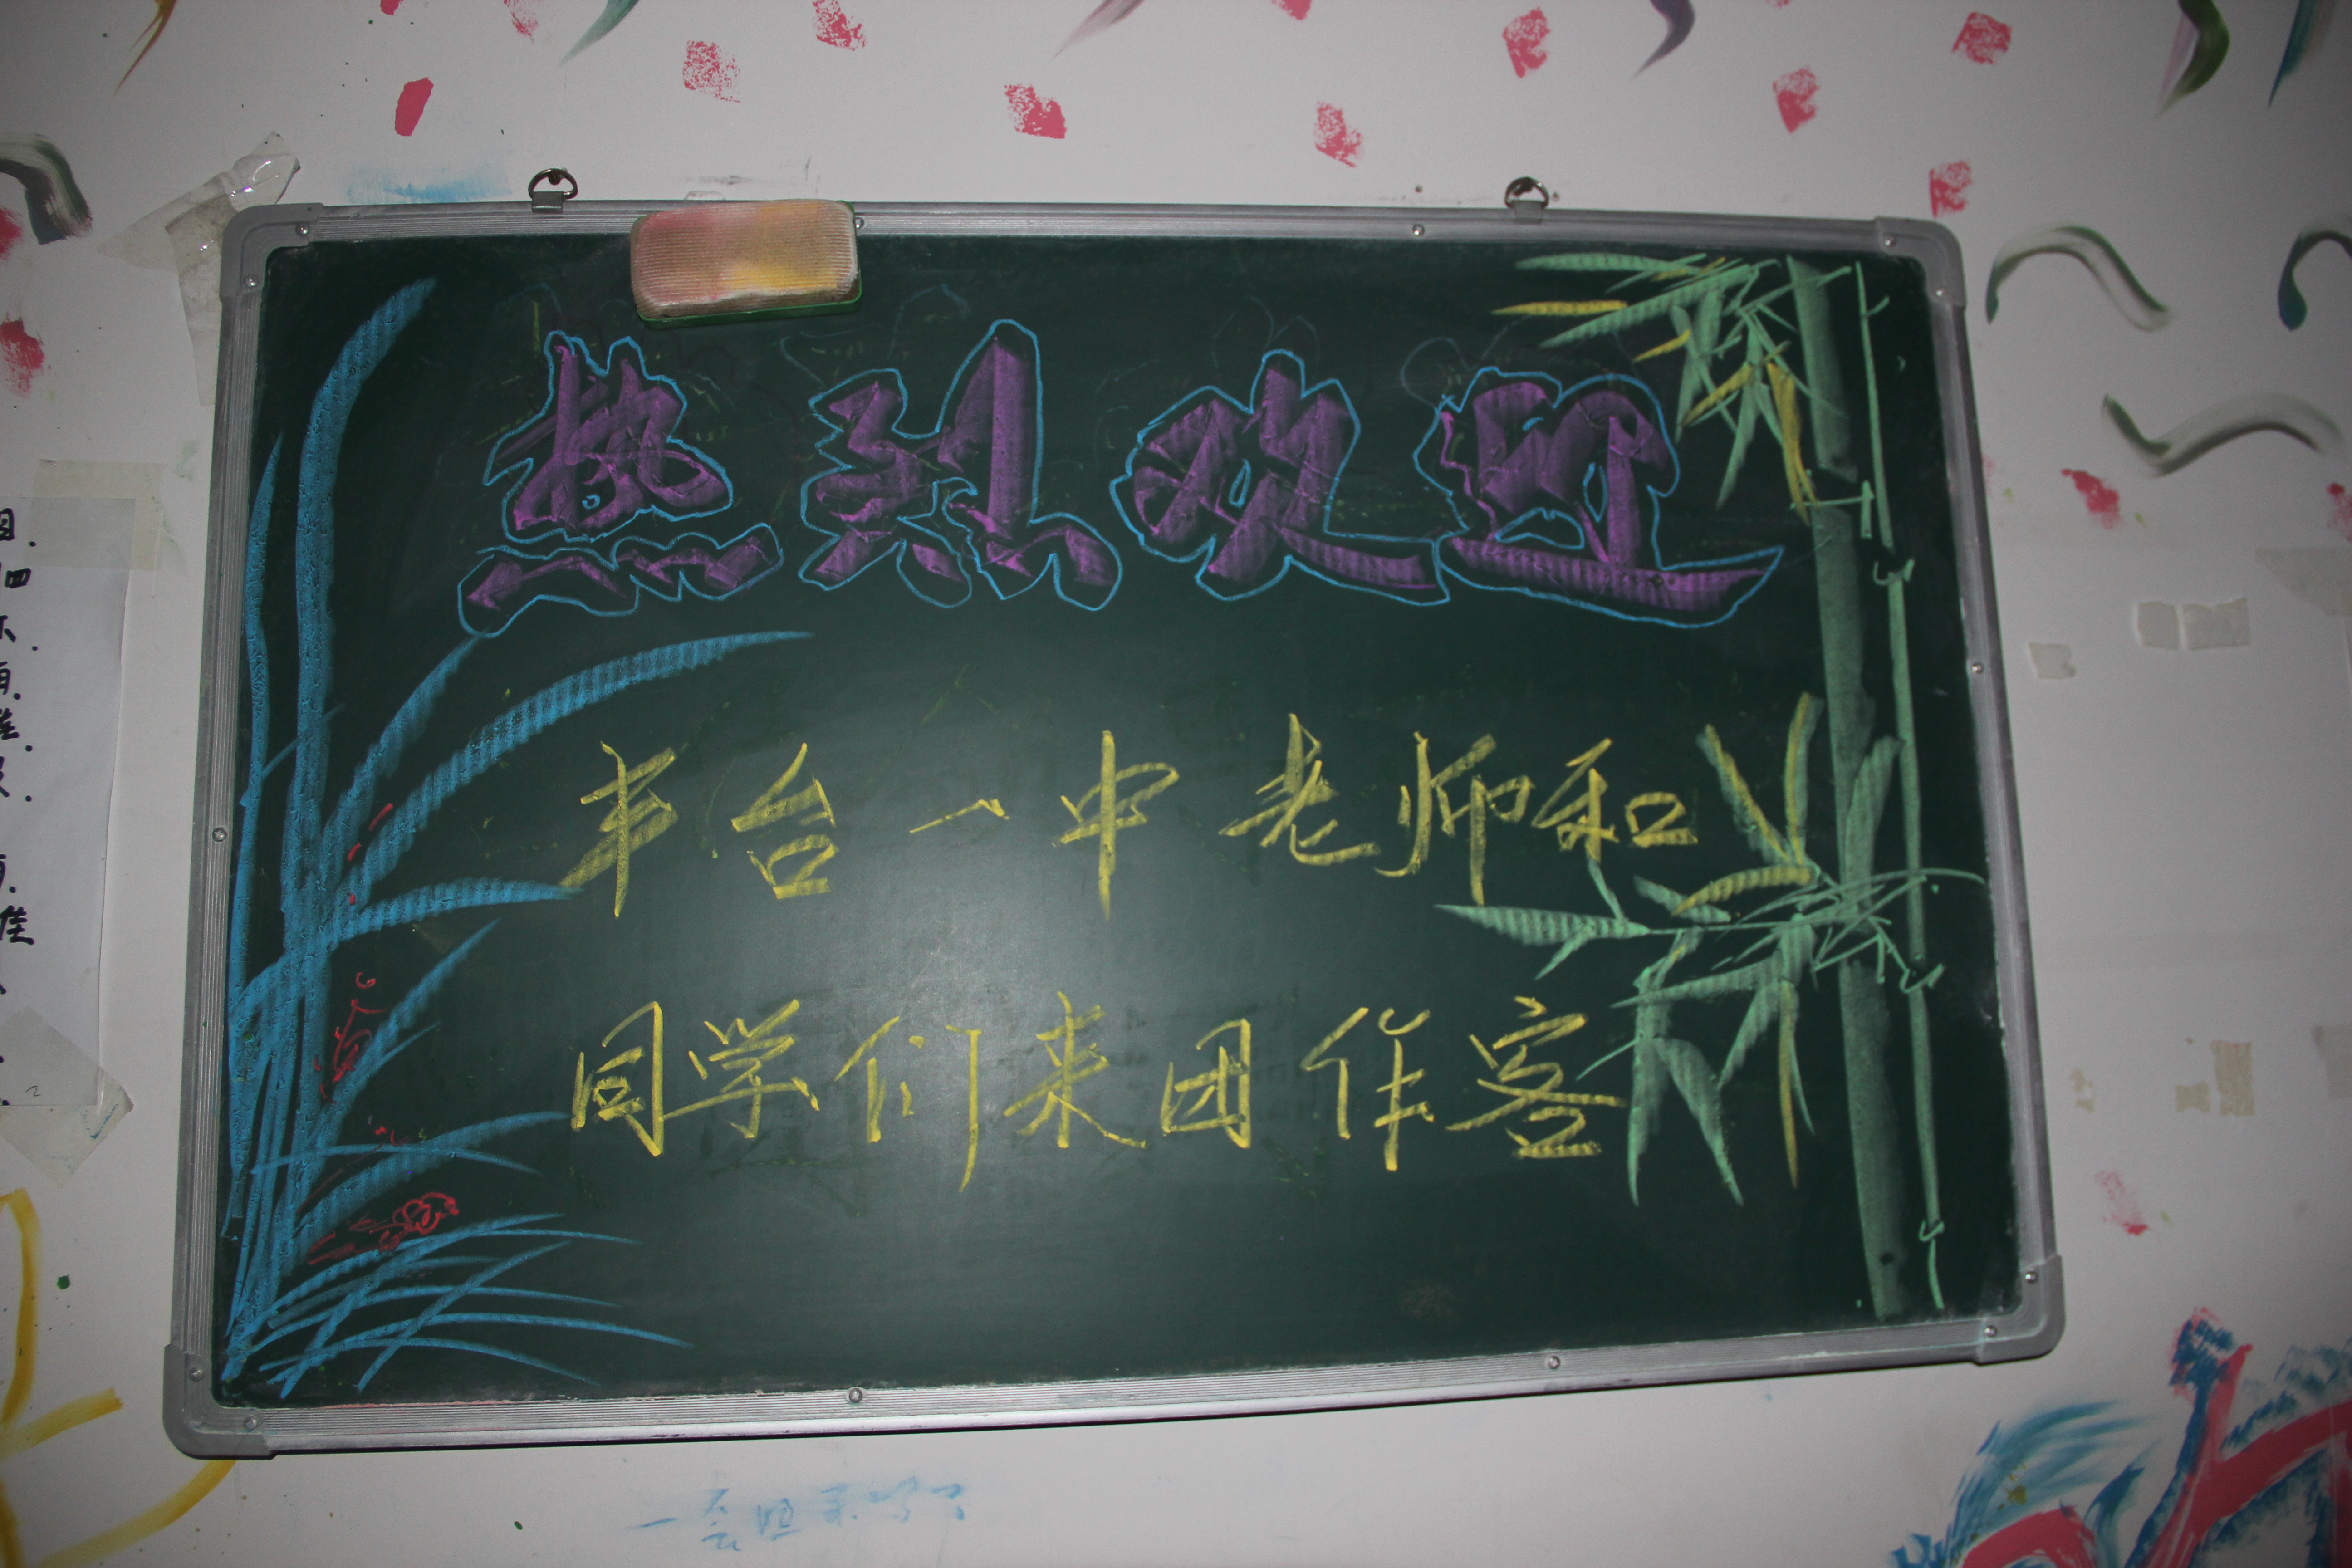 热烈欢迎
丰台一中老师和
同学们来团作客